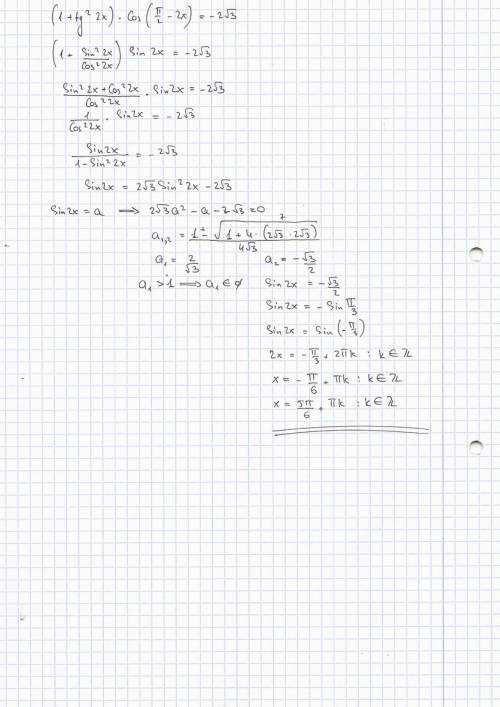 (1 + tg² 2x) · Cos(π/2 - 2x) = -2√3
(1 + Sin² 2x / Cos² 2x) Sin 2x = -2√3
(Sin² 2x + Cos² 2x) / Cos² 2x · Sin2x = -2√3
1 / Cos² 2x · Sin2x = -2√3
Sin2x / (1 - Sin² 2x) = -2√3
Sin2x = 2√3 Sin² 2x - 2√3
Sin2x = a ⟹ 2√3 a² - a - 2√3 = 0
a₁,₂ = (1 ± √(1 + 4 · (2√3 · 2√3))) / 4√3 7
a₁ = 2/√3 a₂ = -√3/2
a₁ > 1 ⟹ a₁ ∈ ∅ Sin2x = -√3/2
Sin2x = - Sin π/3
Sin2x = Sin(-π/3)
2x = -π/3 + 2πk : k ∈ ℤ
x = -π/6 + πk : k ∈ ℤ
x = 5π/6 + πk : k ∈ ℤ